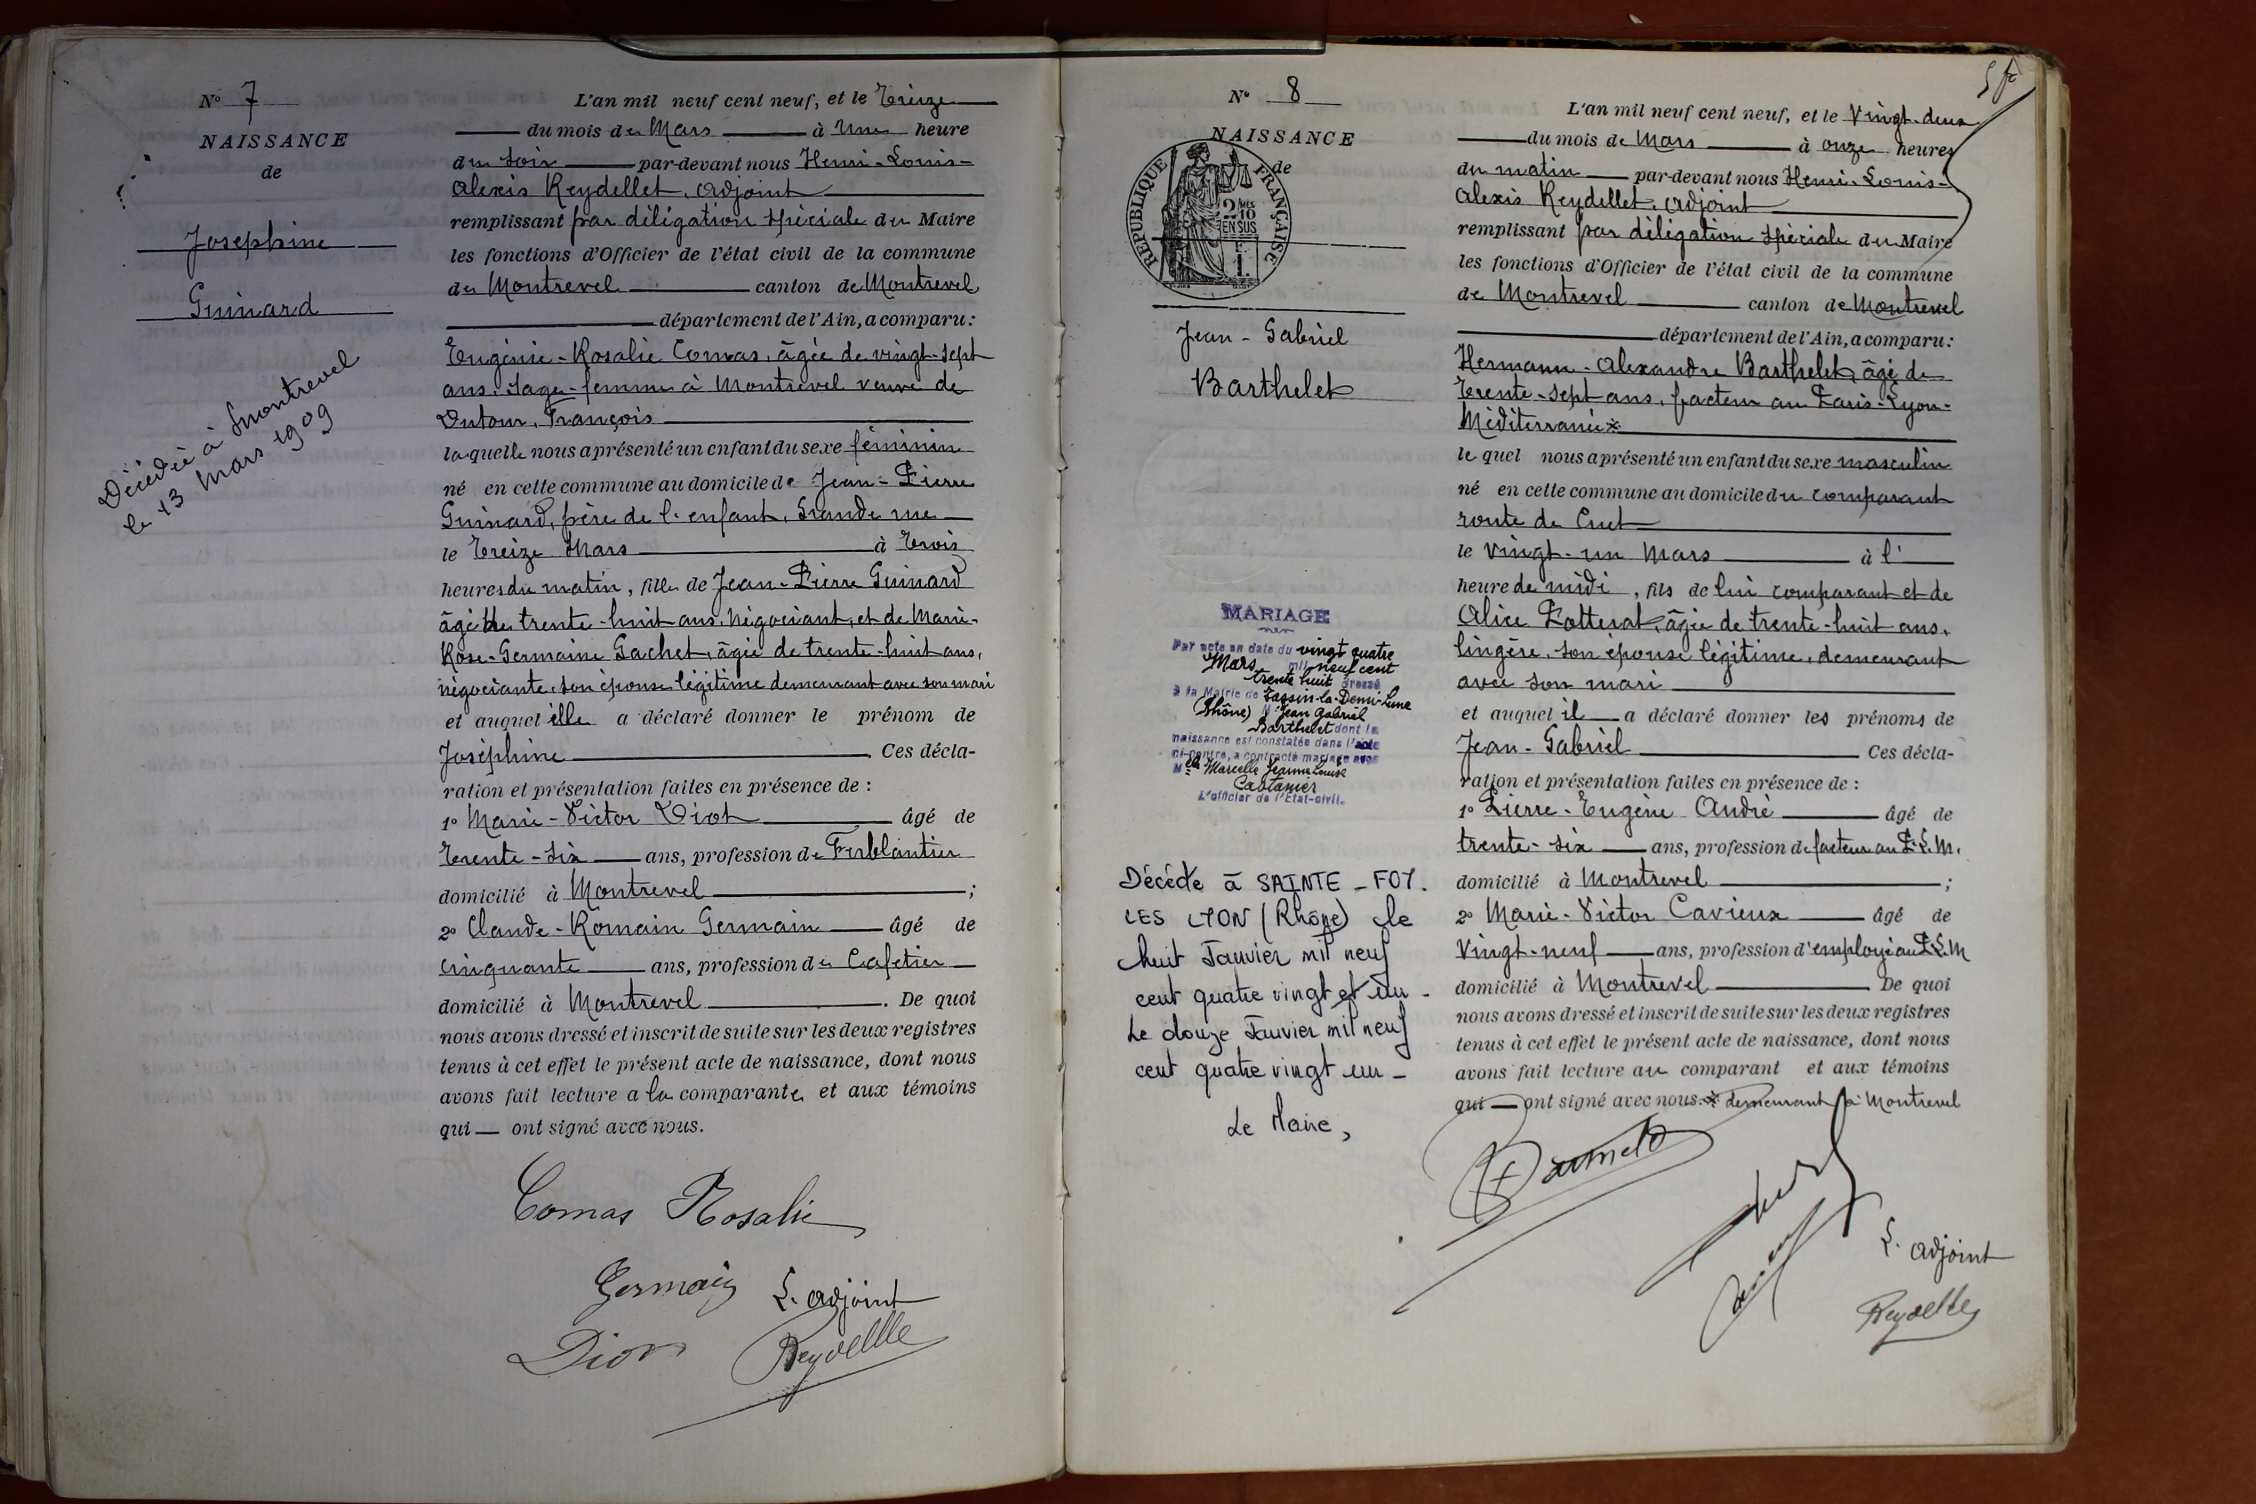 N° 7
NAISSANCE
de
Josephine
Guinard
Décédée à Montrevel
le 13 Mars 1909
L'an mil neuf cent neuf, et le Treize
du mois de Mars à une heure
du soir par-devant nous Henri-Louis-
Alexis Reydellet, adjoint
remplissant par déligation spéciale du Maire
les fonctions d'Officier de l'état civil de la commune
de Montrevel canton de Montrevel
département de l'Ain, a comparu:
Eugénie-Rosalie Comas, âgée de vingt-sept
ans, sage-femme à Montrevel veuve de
Dutour, François
laquelle nous a présenté un enfant du sexe féminin
né en cette commune au domicile de Jean-Pierre
Guinard, père de l'enfant, Grande rue
le Treize Mars à Trois
heures du matin, fille de Jean-Pierre Guinard
âgé de trente-huit ans, négociant, et de Marie-
Rose-Germaine Gachet, âgée de trente-huit ans,
négociante, son épouse légitime demeurant avec son mari
et auquel elle a déclaré donner le prénom de
Joséphine Ces décla-
ration et présentation faites en présence de :
1° Marie-Victor Diot âgé de
Trente-six ans, profession de Ferblantier
domicilié à Montrevel ;
2° Claude-Romain Germain âgé de
cinquante ans, profession de Cafetier
domicilié à Montrevel. De quoi
nous avons dressé et inscrit de suite sur les deux registres
tenus à cet effet le présent acte de naissance, dont nous
avons fait lecture a la comparante et aux témoins
qui ont signé avec nous.
Comas Rosalie
Germain L. adjoint
Diot Reydellet
5
N° 8
NAISSANCE
de
REPUBLIQUE FRANÇAISE
2/10
EN SUS
Jean-Gabriel
Barthelet
MARIAGE
Par acte en date du vingt quatre
Mars mil neuf cent
trente huit dressé
à la Mairie de Tassin-la-Demi-Lune
(Rhône) Mr Jean Gabriel
Barthelet dont la
naissance est constatée dans l'acte
ci-contre, a contracté mariage avec
Mlle Marcelle Jeanne Louise
Castanier
L'officier de l'Etat-civil.
Décédé à SAINTE-FOY.
LES LYON (Rhône) le
huit Janvier mil neuf
cent quatre vingt et un -
Le douze Janvier mil neuf
cent quatre vingt un -
Le Maire,
L'an mil neuf cent neuf, et le Vingt-deux
du mois de Mars à onze heures
du matin par-devant nous Henri-Louis-
Alexis Reydellet, adjoint
remplissant par déligation spéciale du Maire
les fonctions d'Officier de l'état civil de la commune
de Montrevel canton de Montrevel
département de l'Ain, a comparu:
Hermann-Alexandre Barthelet, âgé de
Trente-sept ans, facteur au Paris-Lyon-
Méditerranée*
lequel nous a présenté un enfant du sexe masculin
né en cette commune au domicile du comparant
route de Cuet
le vingt-un Mars à l'
heure de midi, fils de lui comparant et de
Alice Potterat, âgée de trente-huit ans,
lingère, son épouse légitime, demeurant
avec son mari
et auquel il a déclaré donner les prénoms de
Jean-Gabriel Ces décla-
ration et présentation faites en présence de :
1° Pierre-Eugène André âgé de
trente-six ans, profession de facteur au P.L.M.
domicilié à Montrevel ;
2° Marie-Victor Cavieux âgé de
Vingt-neuf ans, profession d'employé au P.L.M
domicilié à Montrevel De quoi
nous avons dressé et inscrit de suite sur les deux registres
tenus à cet effet le présent acte de naissance, dont nous
avons fait lecture au comparant et aux témoins
qui ont signé avec nous. * demeurant à Montrevel
L. adjoint
Reydellet